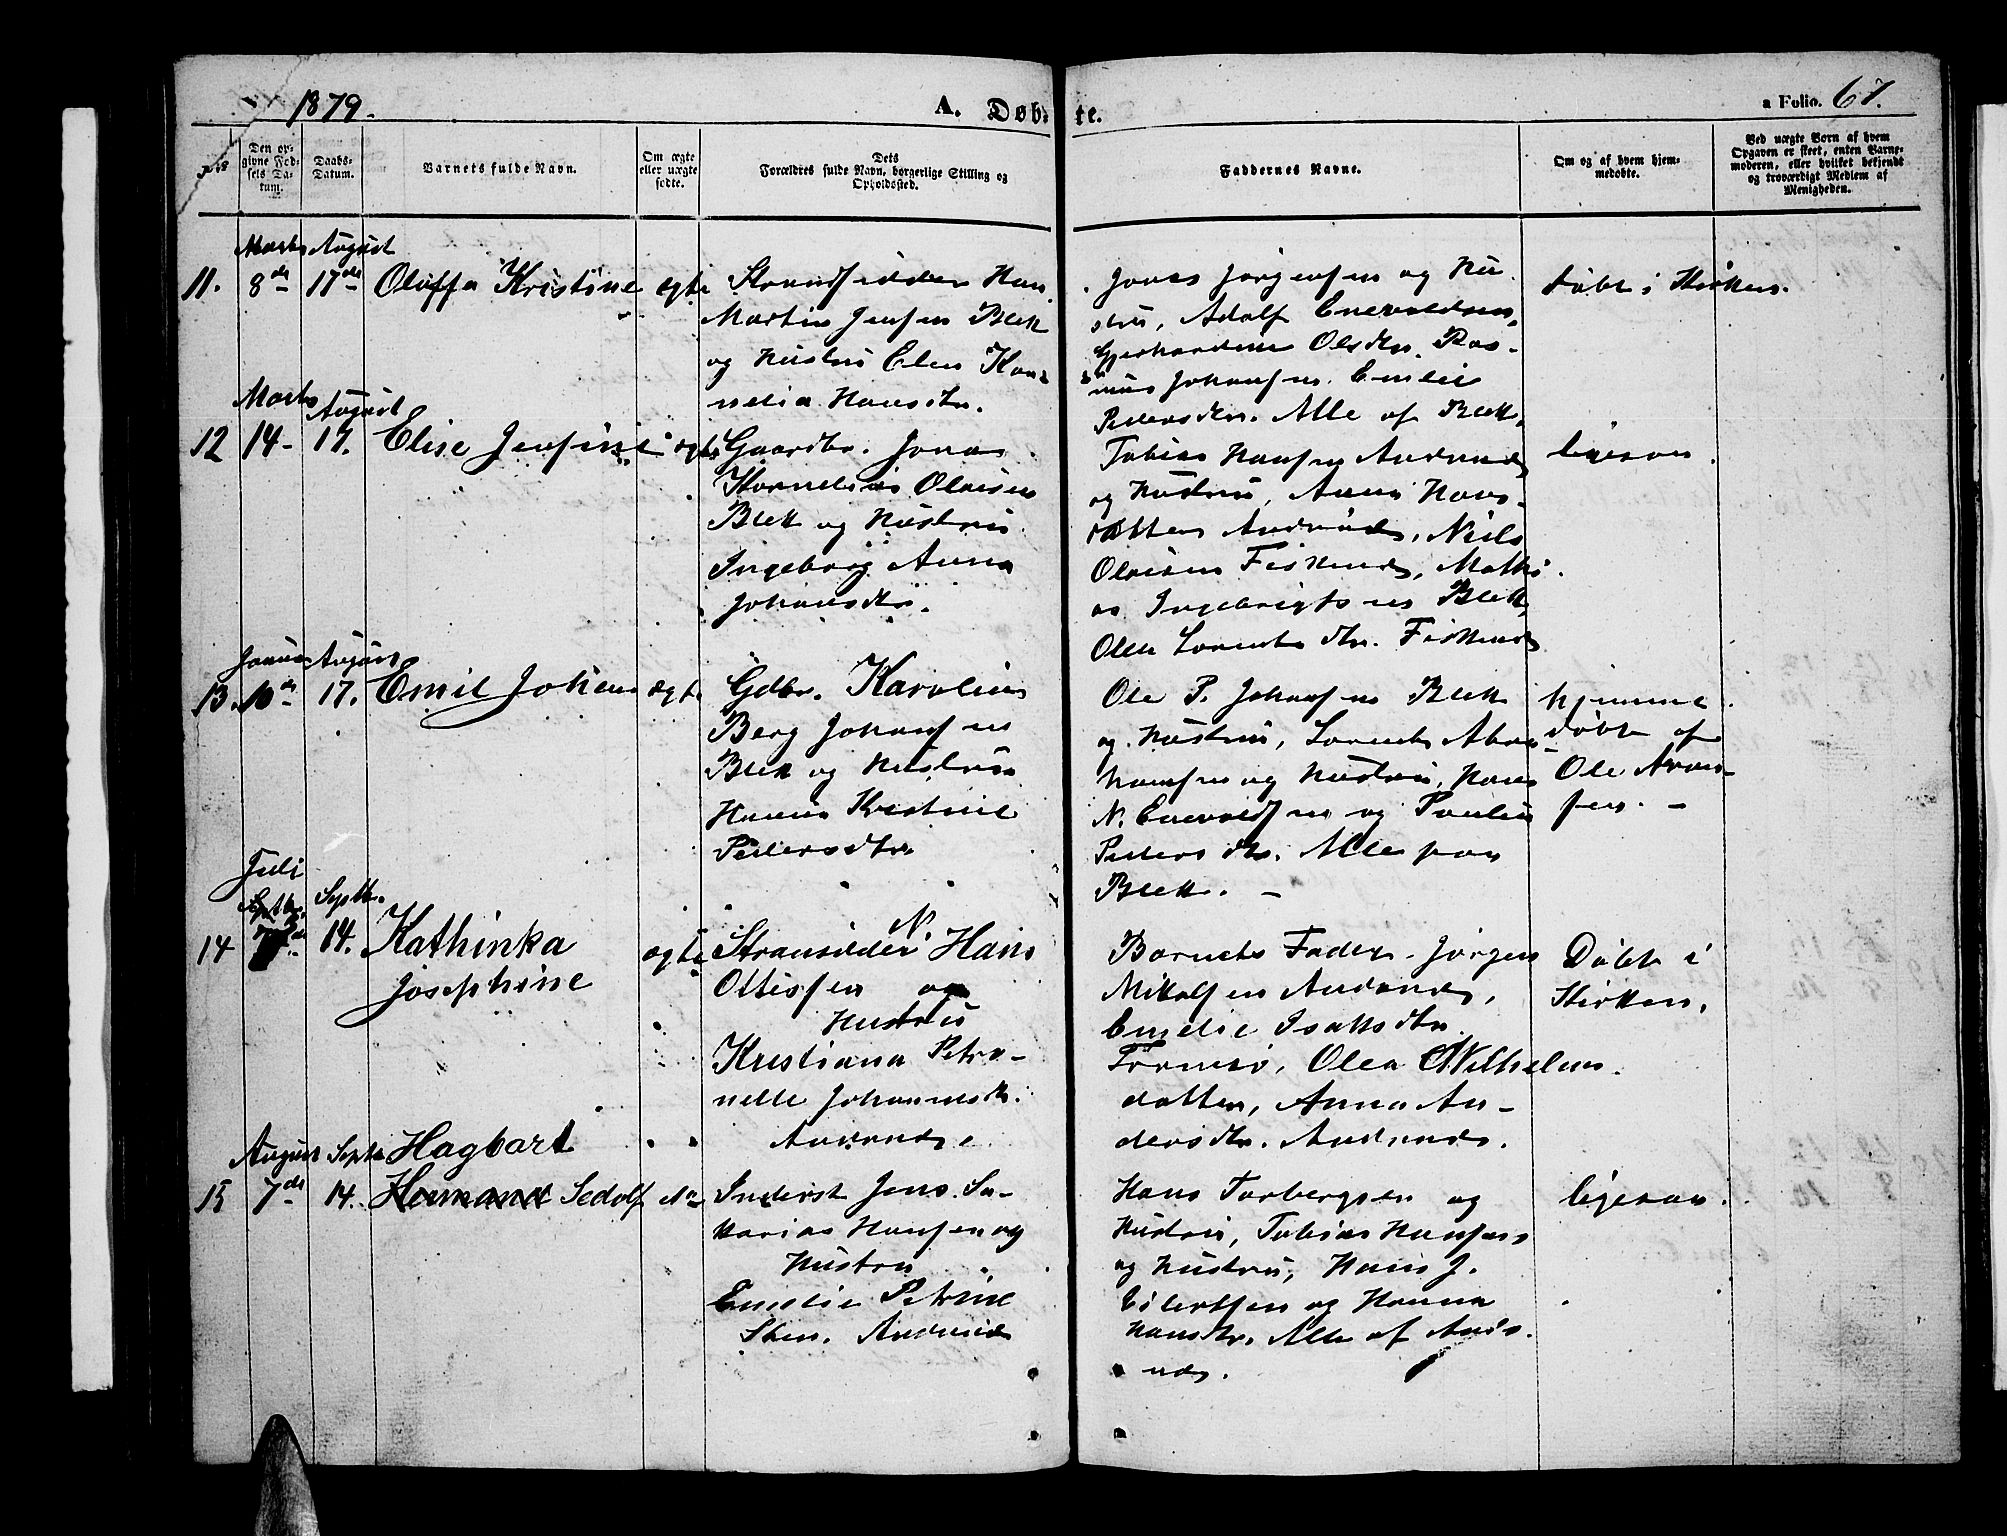 1879.
A. Døb-
te.
a Folio. 67.
Den op-
givne Fød-
sels Da-
tum.
Daabs-
Datum.
Barnets fulde Navn.
Om ægte
eller uægte
fødte.
Dets
Forældres fulde Navn, borgerlige Stilling og
Opholdssted.
Faddernes Navne.
Om og af hvem hjem-
medøbte.
Ved uægte Børn af hvem
Opgaven er skeet, enten Barne-
moderen, eller hvilket bekjendt
og troværdigt Medlem af
Menigheden.
Marts August
11. 8de 17de Oluffa Kristine ægte
Strandsidder Han
Martin Jensen Blek
og Hustru Elen Kor-
nelia Hansdtr.
Jonas Jørgensen og Hu-
stru, Adolf Enevoldsen,
Gjerhardine Olsdtr. Ras-
mus Johansen. Emelie
Pedersdtr. Alle af Blek.
døbt i Kirken.
Marts August
12 14- 17. Elise Jensine ægte
Gaardbr. Jonas
Kornelius Olaisen
Blek og Hustru
Ingeborg Anna
Johansdtr.
Tobias Hansen
og Hustru, Anna Hans-
datter, Niels
Olaisen, Mathi-
as Ingebrigtsen Blek,
Olea Lorentsdtr.
ligesaa.
Januar August
13. 10de 17. Emil Johan ægte
Gdbr. Karolius
Berg Johansen
Blek og Hustru
Hanna Kristine
Pedersdtr.
Ole P. Johansen Blek
og Hustru, Lorents Abra-
hamsen og Hustru, Hans
N. Enevoldsen og Pauline
Pedersdtr. Alle paa
Blek. -
hjemme
døbt af
Ole
Juli
Septbr. Septbr.
14 14. Kathinka
Josephine
ægte
N.
Stransidder Hans
Ottesen og
Hustru
Kristiana Petro-
nelle Johannesdtr.
Barnets Fader. Jørgen
Mikalsen
Emelie Isaksdtr.
Olea Wilhelm-
datter, Anna An-
dersdtr.
Døbt i
Kirken.
August Septbr Hagbart
15 7de 14. Hermann Sedolf
Inderst Jens Sa-
karias Hansen og
Hustru
Emelie Petrine
Hans Torbergsen og
Hustru, Tobias Hansen
og Hustru, Hans J.
Eilertsen og Hanna
Hansdtr. Alle af
ligesaa.